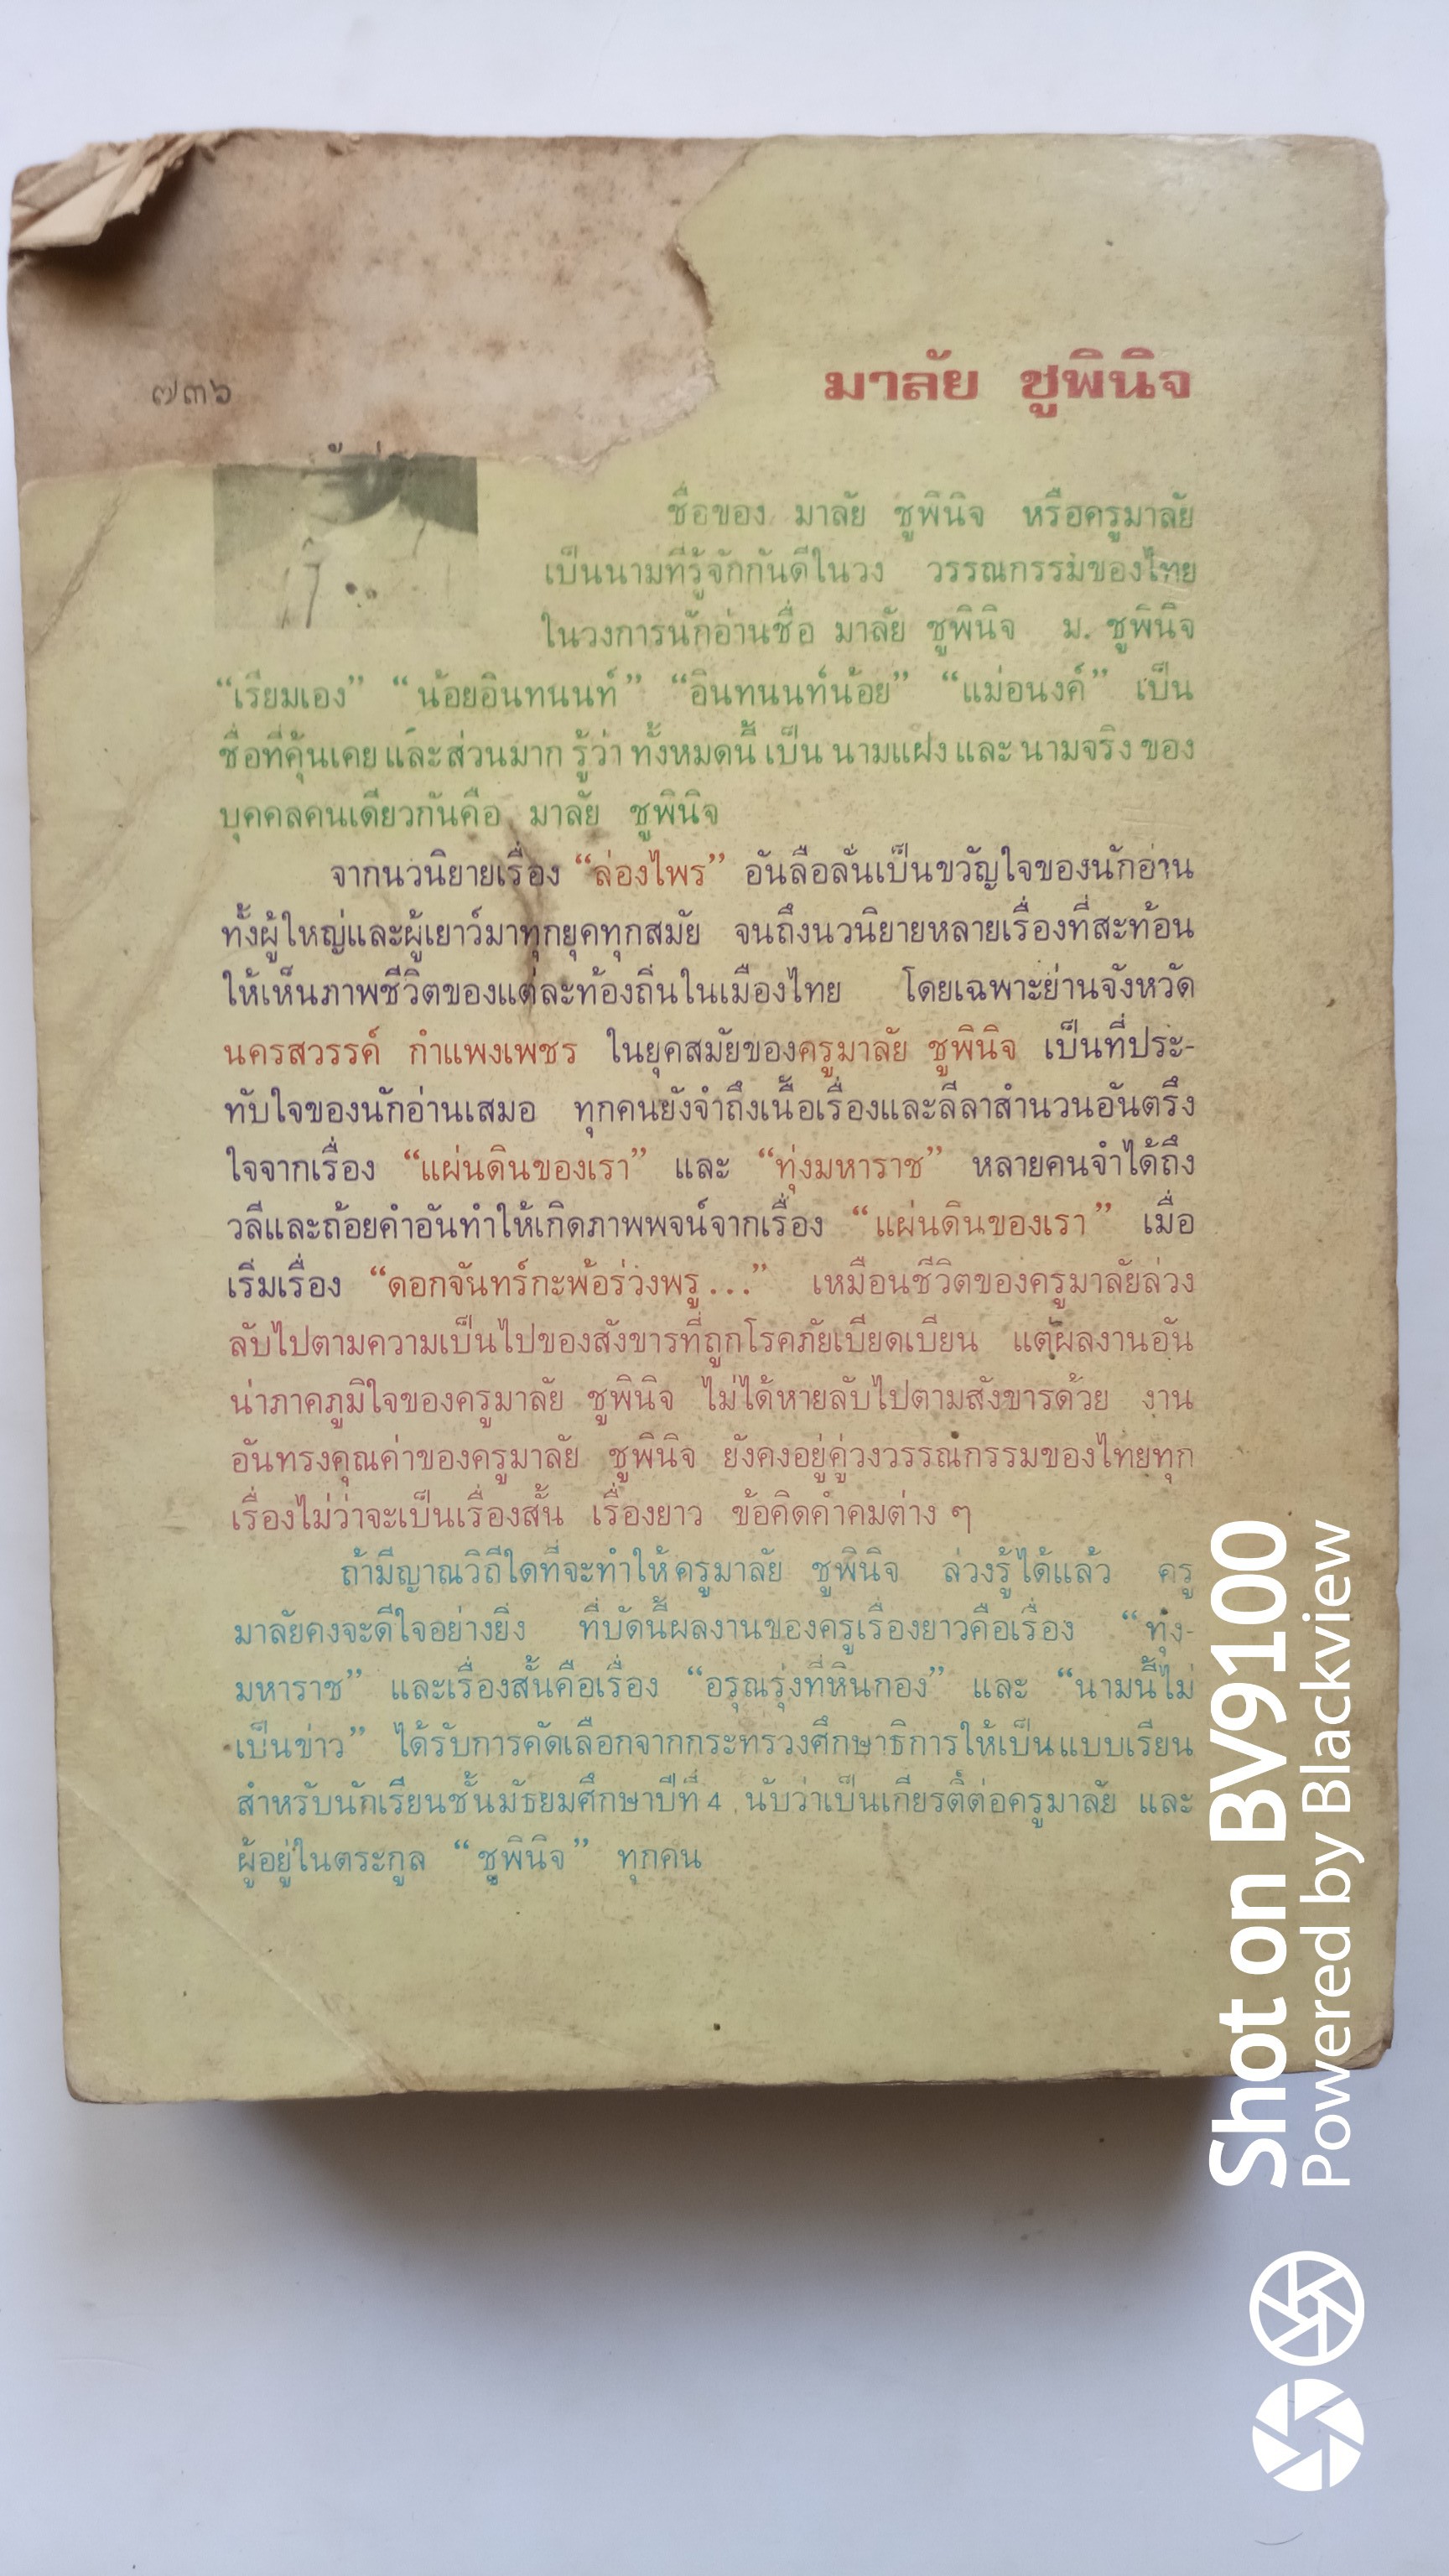 ๗๓๖
มาลัย ชูพินิจ
ชื่อของ มาลัย ชูพินิจ หรือครูมาลัย
เป็นนามที่รู้จักกันดีในวง วรรณกรรมของไทย
ในวงการนักอ่านชื่อ มาลัย ชูพินิจ ม. ชูพินิจ
“เรียมเอง” “น้อยอินทนนท์” “อินทนนท์น้อย” “แม่อนงค์” เป็น
ชื่อที่คุ้นเคย และส่วนมาก รู้ว่า ทั้งหมดนี้ เป็น นามแฝง และ นามจริง ของ
บุคคลคนเดียวกันคือ มาลัย ชูพินิจ
จากนวนิยายเรื่อง “ล่องไพร” อันลือลั่นเป็นขวัญใจของนักอ่าน
ทั้งผู้ใหญ่และผู้เยาว์มาทุกยุคทุกสมัย จนถึงนวนิยายหลายเรื่องที่สะท้อน
ให้เห็นภาพชีวิตของแต่ละท้องถิ่นในเมืองไทย โดยเฉพาะย่านจังหวัด
นครสวรรค์ กำแพงเพชร ในยุคสมัยของครูมาลัย ชูพินิจ เป็นที่ประ-
ทับใจของนักอ่านเสมอ ทุกคนยังจำถึงเนื้อเรื่องและลีลาสำนวนอันตรึง
ใจจากเรื่อง “แผ่นดินของเรา” และ “ทุ่งมหาราช” หลายคนจำได้ถึง
วลีและถ้อยคำอันทำให้เกิดภาพพจน์จากเรื่อง “แผ่นดินของเรา” เมื่อ
เริ่มเรื่อง “ดอกจันทร์กะพ้อร่วงพรู...” เหมือนชีวิตของครูมาลัยล่วง
ลับไปตามความเป็นไปของสังขารที่ถูกโรคภัยเบียดเบียน แต่ผลงานอัน
น่าภาคภูมิใจของครูมาลัย ชูพินิจ ไม่ได้หายลับไปตามสังขารด้วย งาน
อันทรงคุณค่าของครูมาลัย ชูพินิจ ยังคงอยู่คู่วงวรรณกรรมของไทยทุก
เรื่องไม่ว่าจะเป็นเรื่องสั้น เรื่องยาว ข้อคิดคำคมต่าง ๆ
ถ้ามีญาณวิถีใดที่จะทำให้ครูมาลัย ชูพินิจ ล่วงรู้ได้แล้ว ครู
มาลัยคงจะดีใจอย่างยิ่ง ที่บัดนี้ผลงานของครูเรื่องยาวคือเรื่อง “ทุ่ง-
มหาราช” และเรื่องสั้นคือเรื่อง “อรุณรุ่งที่หินกอง” และ “นามนี้ไม่
เป็นข่าว” ได้รับการคัดเลือกจากกระทรวงศึกษาธิการให้เป็นแบบเรียน
สำหรับนักเรียนชั้นมัธยมศึกษาปีที่ 4 นับว่าเป็นเกียรติ์ต่อครูมาลัย และ
ผู้อยู่ในตระกูล “ชูพินิจ” ทุกคน
Shot on BV9100
Powered by Blackview